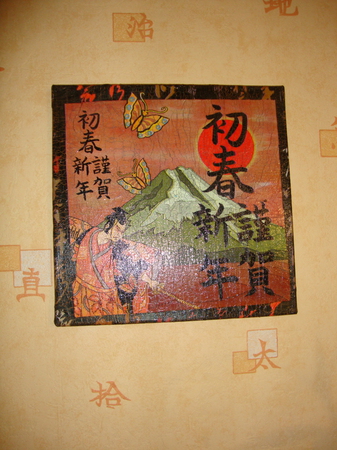 地
治
初春
謹賀
新年
初春
謹賀
新年
直
太
拾